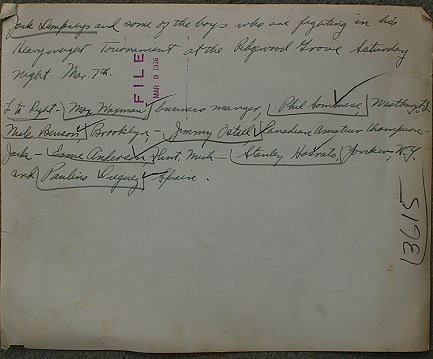 Jack Dempsey and some of the boys who are fighting in his
Heavyweight Tournament at the Ridgewood Grove Saturday
night Mar. 7th.
FILE
MAR 9 1936
L to Right - Max Waxman, business manager, Phil
Brooklyn, - Jimmy Canadian Amateur Champion -
Jack - Anderson, Flint, Mich - Stanley Yonkers, N.Y.
and Paulino Spain.
13615